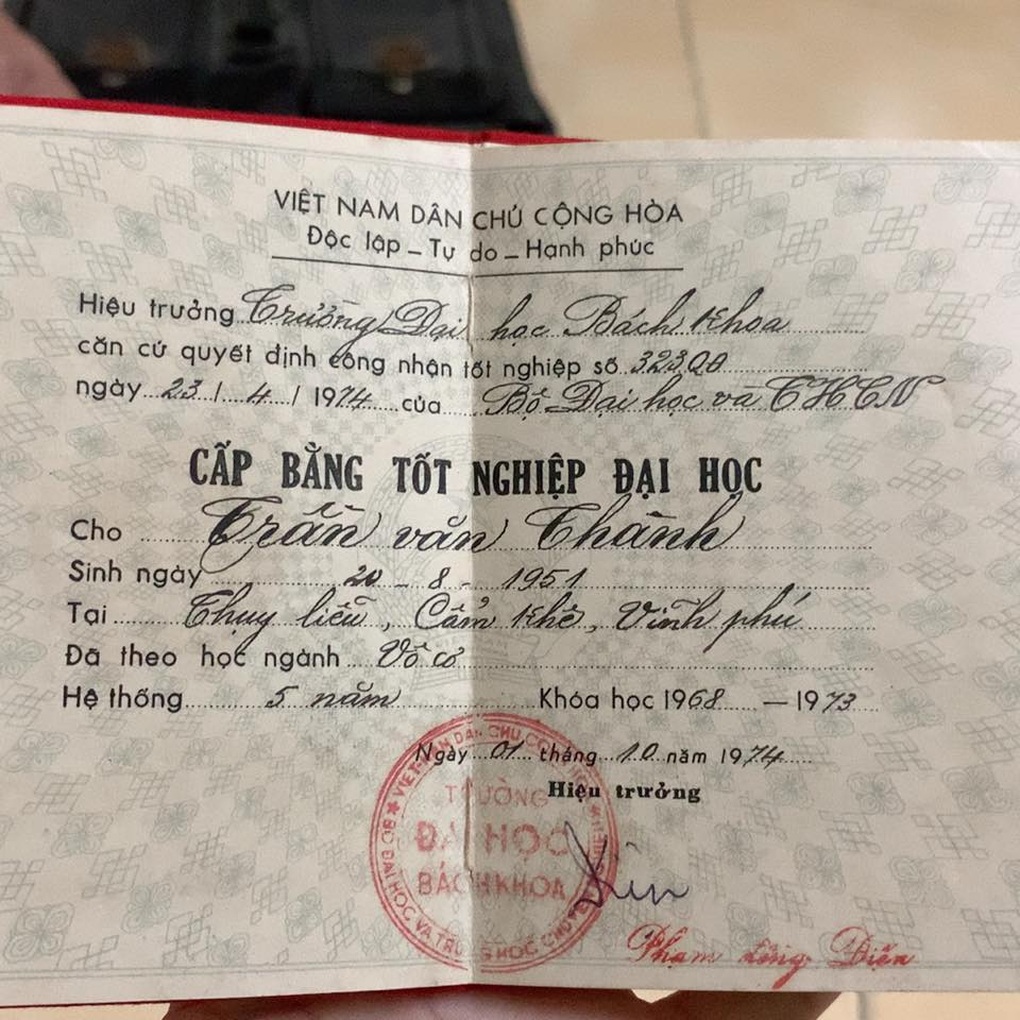 VIỆT NAM DÂN CHỦ CỘNG HÒA
Độc lập – Tự do – Hạnh phúc
Hiệu trưởng Trường Đại học Bách Khoa
căn cứ quyết định công nhận tốt nghiệp số 32300
ngày 23 / 4 / 1974 của Bộ Đại học và THCN
CẤP BẰNG TỐT NGHIỆP ĐẠI HỌC
Cho Trần văn Thành
Sinh ngày 20 - 8 - 1951
Tại Thụy liễu, Cẩm Khê, Vĩnh phú
Đã theo học ngành Vô cơ
Hệ thống 5 năm Khóa học 1968 — 1973
Ngày 01 tháng 10 năm 1974
Hiệu trưởng
TRƯỜNG
ĐẠI HỌC
BÁCH KHOA
BỘ ĐẠI HỌC VÀ TRUNG HỌC CHUYÊN NGHIỆP
VIỆT NAM DÂN CHỦ CỘNG HÒA
Phạm Đồng Điện